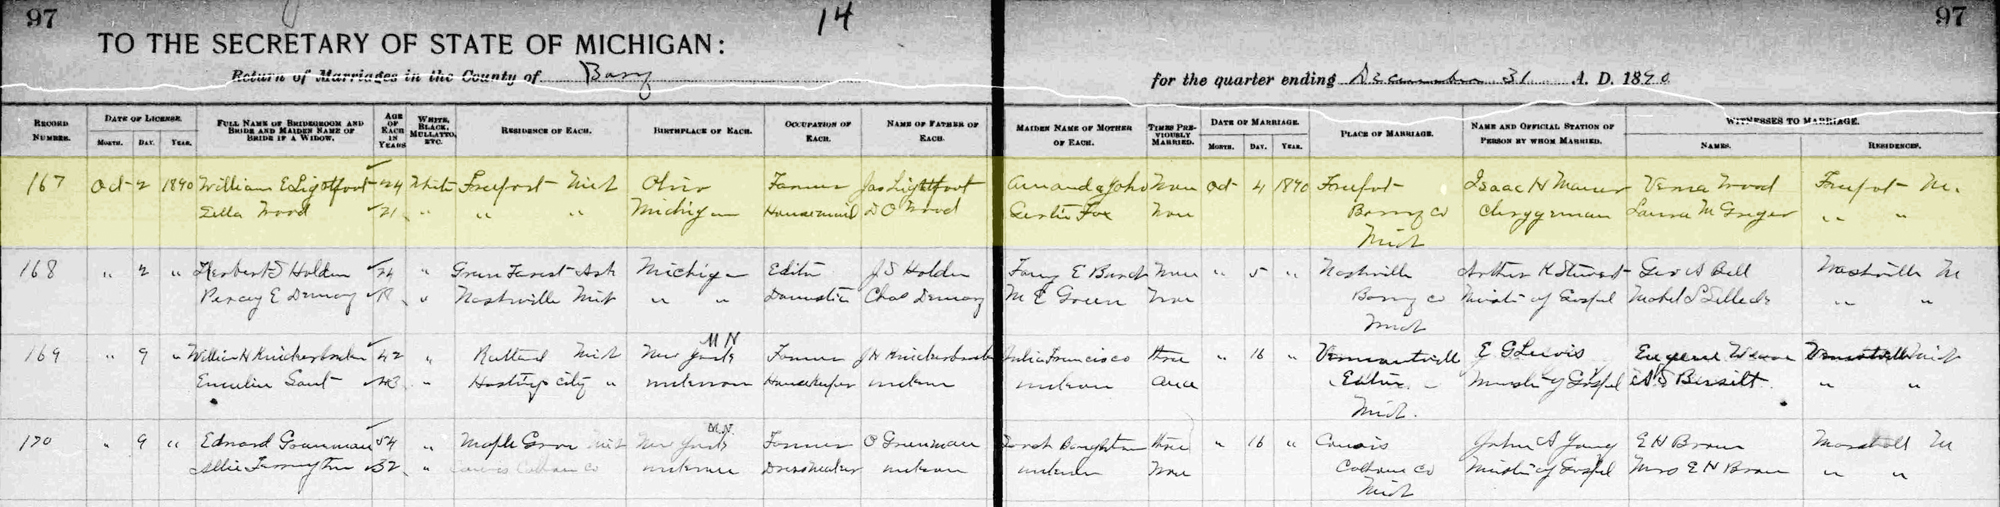 97
14
97
TO THE SECRETARY OF STATE OF MICHIGAN:
Return of Marriages in the County of Barry
for the quarter ending December 31 A. D. 1890
RECORD NUMBER.
DATE OF LICENSE. MONTH. DAY. YEAR.
FULL NAME OF BRIDEGROOM AND BRIDE AND MAIDEN NAME OF BRIDE IF A WIDOW.
AGE OF EACH IN YEARS
WHITE, BLACK, MULLATTO, ETC.
RESIDENCE OF EACH.
BIRTHPLACE OF EACH.
OCCUPATION OF EACH.
NAME OF FATHER OF EACH.
MAIDEN NAME OF MOTHER OF EACH.
TIMES PREVIOUSLY MARRIED.
DATE OF MARRIAGE. MONTH. DAY. YEAR.
PLACE OF MARRIAGE.
NAME AND OFFICIAL STATION OF PERSON BY WHOM MARRIED.
WITNESSES TO MARRIAGE. NAMES. RESIDENCES.
167 Oct 2 1890 William E Lightfoot 24 White Freeport Mich Ohio Farmer Jas Lightfoot Amanda None Oct 4 1890 Freeport Isaac H Verna Wood Freeport M.
Ella Wood 21 " " " Michigan Housemaid D O Wood Fox None Barry Co Clergyman Laura McGregor " "
Mich
168 " 2 " Herbert S Holden 24 " Green Forest Ark Michigan Editor J S Holden E None " 5 " Nashville Arthur Geo A Bell Nashville M
E " Nashville Mich " " Domestic Chas M E Green None Barry Co Minister of Gospel Mabel " "
Mich
M N
169 " 9 " William H Knickerbocker 42 " Rutland Mich New York Farmer J H Knickerbocker Julia Francisco " 16 " Vermontville E G Lewis Eugene Mich
" Hastings City " unknown Housekeeper unknown unknown once Eaton Minister of Gospel " "
Mich.
M.N.
170 " 9 " Edward 54 " Maple Grove Mich New York Farmer O " 16 " John A Young E H Brown Marshall M
Allie 32 " unknown Dressmaker unknown unknown None Calhoun Co Minister of Gospel Mrs E H Brown " "
Mich